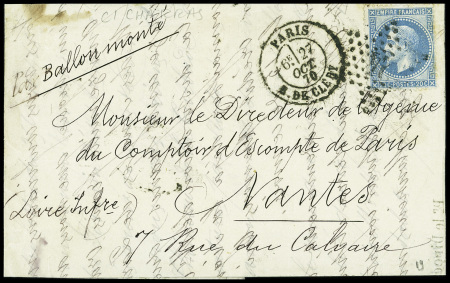 Ballon monté
PARIS
6E 27
OCT
70
R. DE CLERY
EMPIRE FRANÇAIS
Monsieur le Directeur de l'Agence
du Comptoir d'Escompte de Paris
Nantes
(Loire Infre)
7 Rue du Calvaire